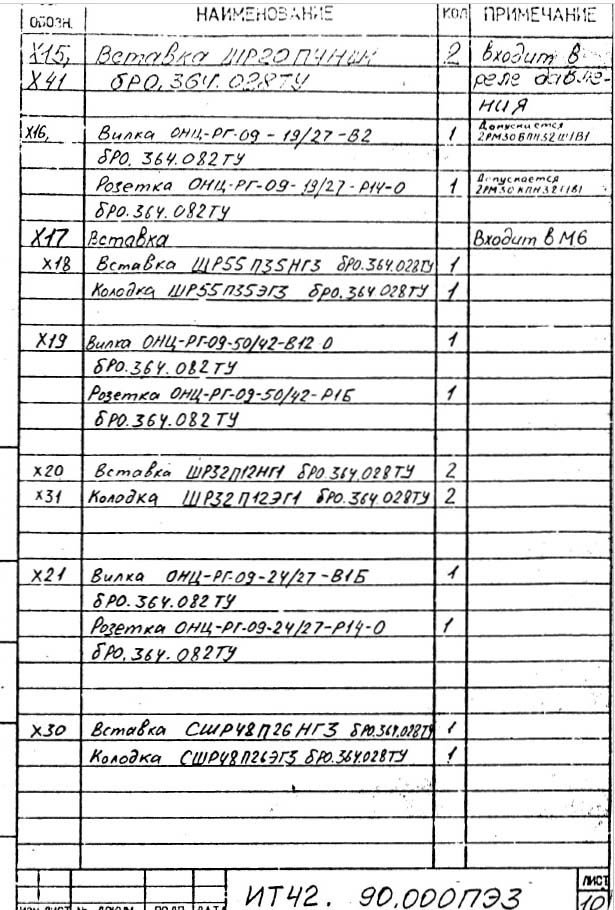 ОБОЗН. НАИМЕНОВАНИЕ КОЛ ПРИМЕЧАНИЕ
Х15, Вставка 2 Входит в
Х41 бРО.364.028ТУ реле давле-
ния
Х16, Вилка ОНЦ-РГ-09-19/27-В2 1 Допускается
бРО.364.082ТУ
Розетка ОНЦ-РГ-09-19/27-Р14-0 1 Допускается
бРО.364.082ТУ
Х17 Вставка Входит в М6
Х18 Вставка ШР55П35НГ3 бРО.364.028ТУ 1
Колодка ШР55П35ЭГ3 бРО.364.028ТУ 1
Х19 Вилка ОНЦ-РГ-09-50/42-В12 0 1
бРО.364.082ТУ
Розетка ОНЦ-РГ-09-50/42-Р1Б 1
бРО.364.082ТУ
Х20 Вставка ШР32П12НГ1 бРО.364.028ТУ 2
Х31 Колодка ШР32П12ЭГ1 бРО.364.028ТУ 2
Х21 Вилка ОНЦ-РГ-09-24/27-В1Б 1
бРО.364.082ТУ
Розетка ОНЦ-РГ-09-24/27-Р14-0 1
бРО.364.082ТУ
Х30 Вставка СШР48П26НГ3 бРО.364.028ТУ 1
Колодка СШР48П26ЭГ3 бРО.364.028ТУ 1
ИТ42. 90.000ПЭ3
ЛИСТ
10